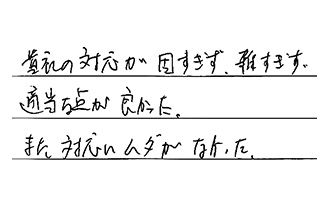 貴社の対応が固すぎず、雑すぎず、
適当な点が良かった。
また対応にムダがなかった。